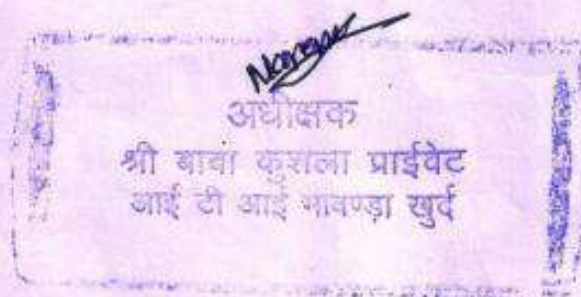 अधीक्षक
श्री बाबा कुशला प्राईवेट
आई टी आई मावण्डा खुर्द